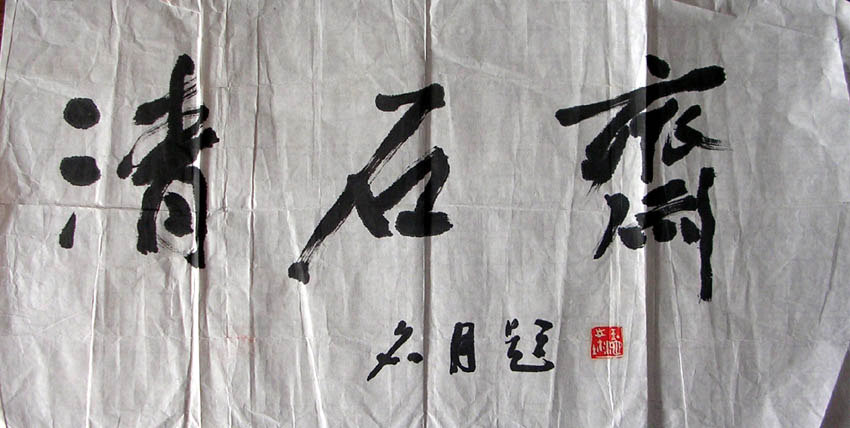 清石齋
月題